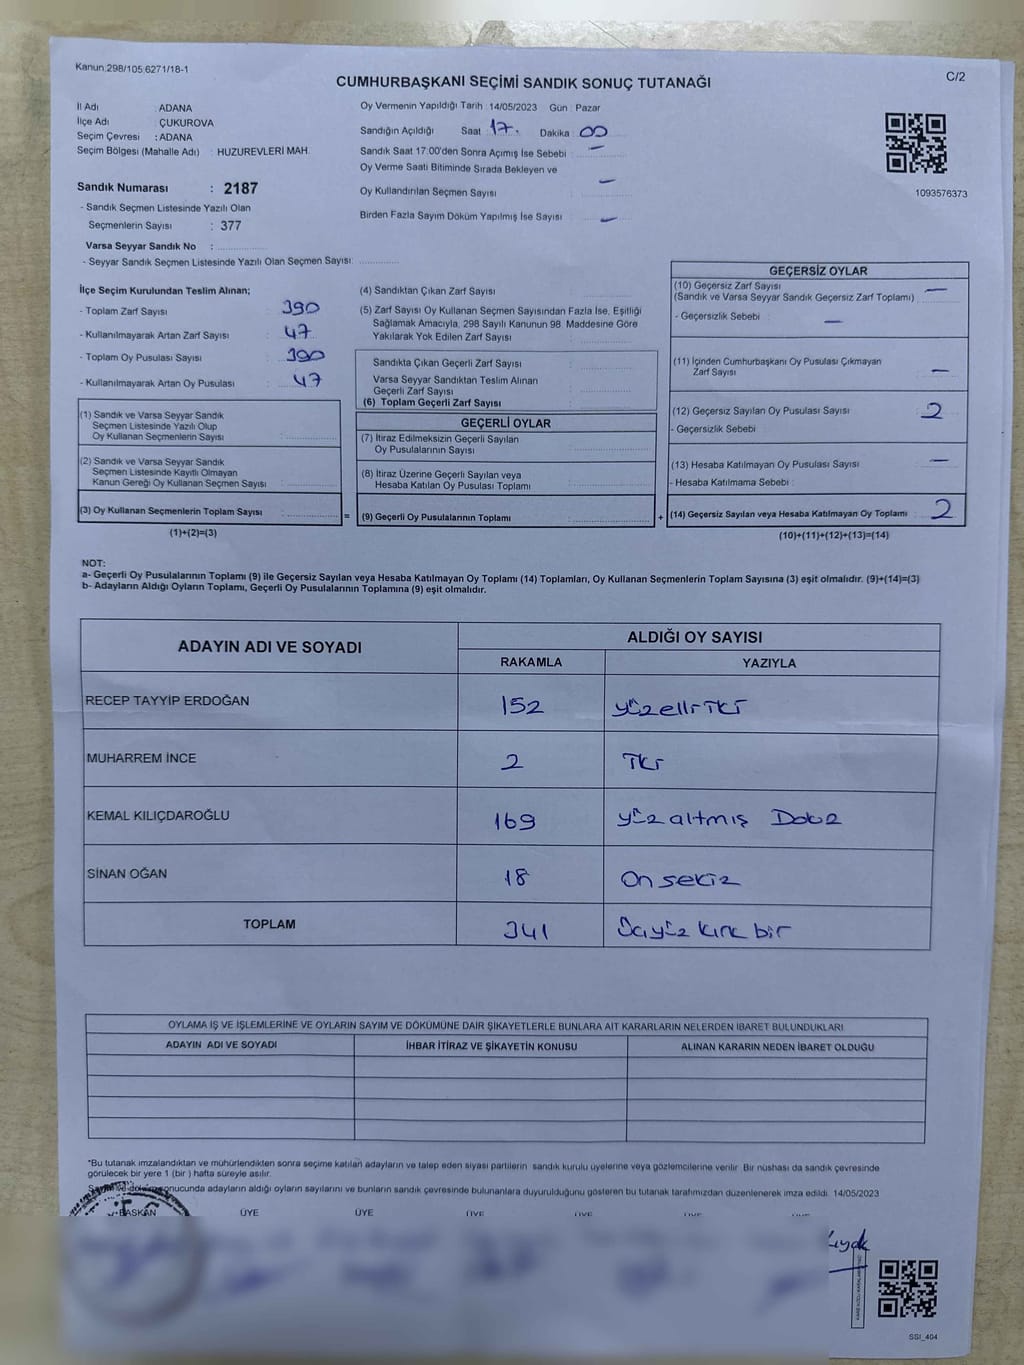 Kanun:298/105 6271/18-1
C/2
CUMHURBAŞKANI SEÇİMİ SANDIK SONUÇ TUTANAĞI
İl Adı : ADANA
İlçe Adı : ÇUKUROVA
Seçim Çevresi : ADANA
Seçim Bölgesi (Mahalle Adı) : HUZUREVLERİ MAH.
Sandık Numarası : 2187
- Sandık Seçmen Listesinde Yazılı Olan
Seçmenlerin Sayısı : 377
Varsa Seyyar Sandık No :
- Seyyar Sandık Seçmen Listesinde Yazılı Olan Seçmen Sayısı:
Oy Vermenin Yapıldığı Tarih : 14/05/2023 Gün : Pazar
Sandığın Açıldığı Saat : 17. Dakika : 00
Sandık Saat 17:00'den Sonra Açımış İse Sebebi : —
Oy Verme Saati Bitiminde Sırada Bekleyen ve
Oy Kullandırılan Seçmen Sayısı : —
Birden Fazla Sayım Döküm Yapılmış İse Sayısı : —
1093576373
İlçe Seçim Kurulundan Teslim Alınan;
- Toplam Zarf Sayısı : 390
- Kullanılmayarak Artan Zarf Sayısı : 47
- Toplam Oy Pusulası Sayısı : 390
- Kullanılmayarak Artan Oy Pusulası : 47
(1) Sandık ve Varsa Seyyar Sandık
Seçmen Listesinde Yazılı Olup
Oy Kullanan Seçmenlerin Sayısı :
(2) Sandık ve Varsa Seyyar Sandık
Seçmen Listesinde Kayıtlı Olmayan
Kanun Gereği Oy Kullanan Seçmen Sayısı :
(3) Oy Kullanan Seçmenlerin Toplam Sayısı : =
(1)+(2)=(3)
(4) Sandıktan Çıkan Zarf Sayısı :
(5) Zarf Sayısı Oy Kullanan Seçmen Sayısından Fazla İse, Eşitliği
Sağlamak Amacıyla, 298 Sayılı Kanunun 98. Maddesine Göre
Yakılarak Yok Edilen Zarf Sayısı :
Sandıkta Çıkan Geçerli Zarf Sayısı :
Varsa Seyyar Sandıktan Teslim Alınan
Geçerli Zarf Sayısı :
(6) Toplam Geçerli Zarf Sayısı :
GEÇERLİ OYLAR
(7) İtiraz Edilmeksizin Geçerli Sayılan
Oy Pusulalarının Sayısı :
(8) İtiraz Üzerine Geçerli Sayılan veya
Hesaba Katılan Oy Pusulası Toplamı :
(9) Geçerli Oy Pusulalarının Toplamı : +
GEÇERSİZ OYLAR
(10) Geçersiz Zarf Sayısı : —
(Sandık ve Varsa Seyyar Sandık Geçersiz Zarf Toplamı)
- Geçersizlik Sebebi : —
(11) İçinden Cumhurbaşkanı Oy Pusulası Çıkmayan
Zarf Sayısı : —
(12) Geçersiz Sayılan Oy Pusulası Sayısı : 2
- Geçersizlik Sebebi :
(13) Hesaba Katılmayan Oy Pusulası Sayısı : —
- Hesaba Katılmama Sebebi :
(14) Geçersiz Sayılan veya Hesaba Katılmayan Oy Toplamı : 2
(10)+(11)+(12)+(13)=(14)
NOT:
a- Geçerli Oy Pusulalarının Toplamı (9) ile Geçersiz Sayılan veya Hesaba Katılmayan Oy Toplamı (14) Toplamları, Oy Kullanan Seçmenlerin Toplam Sayısına (3) eşit olmalıdır. (9)+(14)=(3)
b- Adayların Aldığı Oyların Toplamı, Geçerli Oy Pusulalarının Toplamına (9) eşit olmalıdır.
ADAYIN ADI VE SOYADI ALDIĞI OY SAYISI
RAKAMLA YAZIYLA
RECEP TAYYİP ERDOĞAN 152 yüzelli İki
MUHARREM İNCE 2 İki
KEMAL KILIÇDAROĞLU 169 yüz altmış Dokuz
SİNAN OĞAN 18 On sekiz
TOPLAM 341 Üçyüz kırk bir
OYLAMA İŞ VE İŞLEMLERİNE VE OYLARIN SAYIM VE DÖKÜMÜNE DAİR ŞİKAYETLERLE BUNLARA AİT KARARLARIN NELERDEN İBARET BULUNDUKLARI
ADAYIN ADI VE SOYADI İHBAR İTİRAZ VE ŞİKAYETİN KONUSU ALINAN KARARIN NEDEN İBARET OLDUĞU
*Bu tutanak imzalandıktan ve mühürlendikten sonra seçime katılan adayların ve talep eden siyasi partilerin sandık kurulu üyelerine veya gözlemcilerine verilir. Bir nüshası da sandık çevresinde
görülecek bir yere 1 (bir ) hafta süreyle asılır.
Sayım ve döküm sonucunda adayların aldığı oyların sayılarını ve bunların sandık çevresinde bulunanlara duyurulduğunu gösteren bu tutanak tarafımızdan düzenlenerek imza edildi. 14/05/2023
BAŞKAN ÜYE ÜYE ÜYE ÜYE
SSI_404